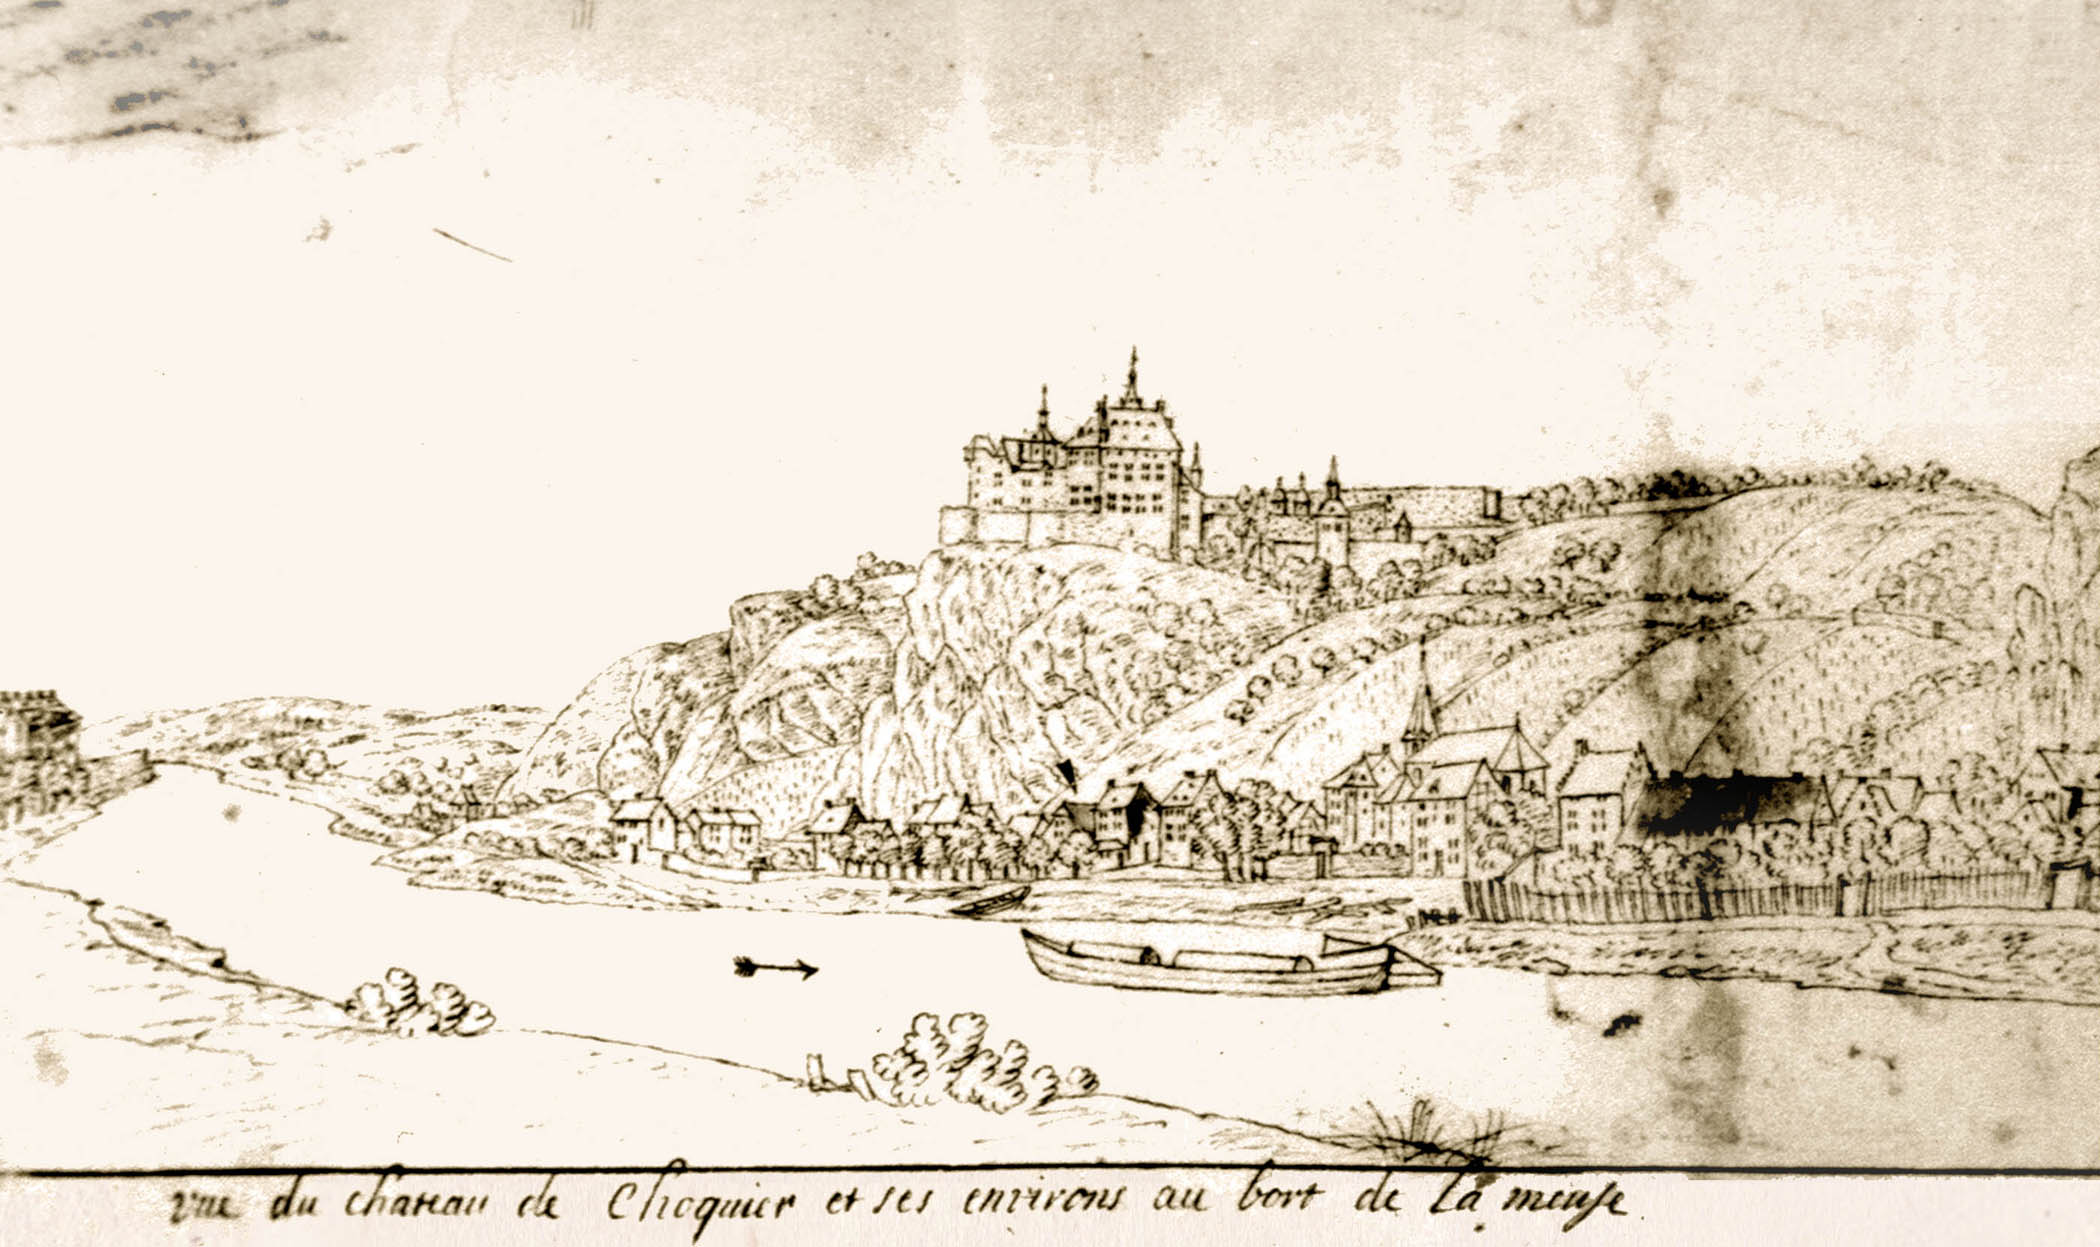 vue du chateau de Choquier et ses environs au bort de la meuse